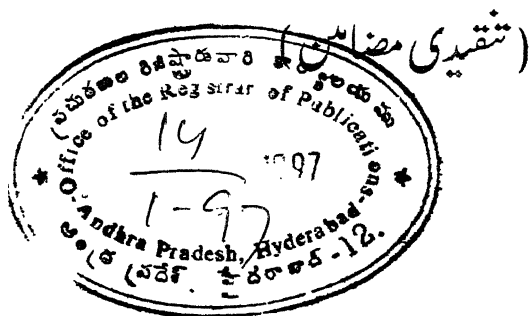 (تنقیدی مضامین)
ప్రచురణల రిజిష్ట్రారు వారి కార్యాలయము
Office of the Registrar of Publications
14
1-97
1997
Andhra Pradesh, Hyderabad-12.
ఆంధ్ర ప్రదేశ్. హైదరాబాద్-12.